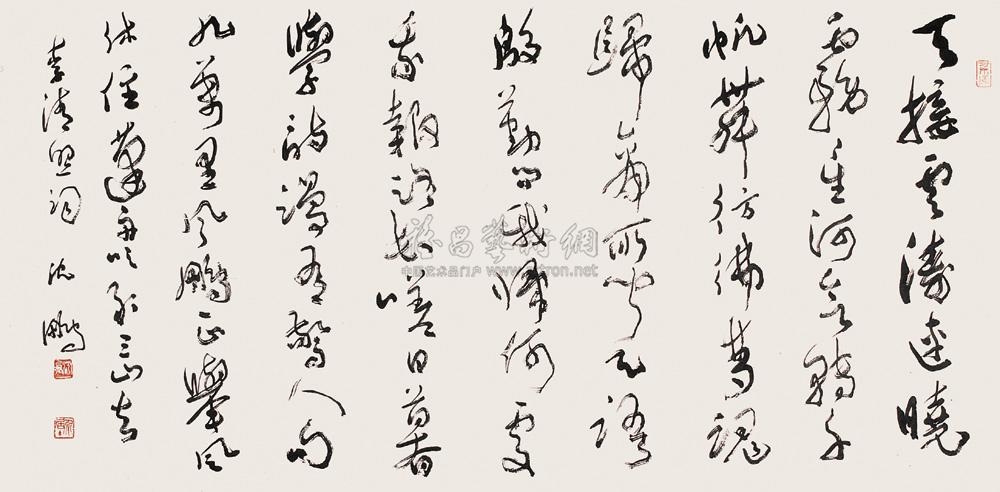 天接雲濤連曉
霧星河欲轉千
帆舞彷彿夢魂
歸帝所聞天語
殷勤問我歸何處
我報路長嗟日暮
學詩謾有驚人句
九萬里風鵬正舉風
休住蓬舟吹取三山去
李清照詞 沈鵬
雅昌藝術網
中国艺术品门户 www.artron.net